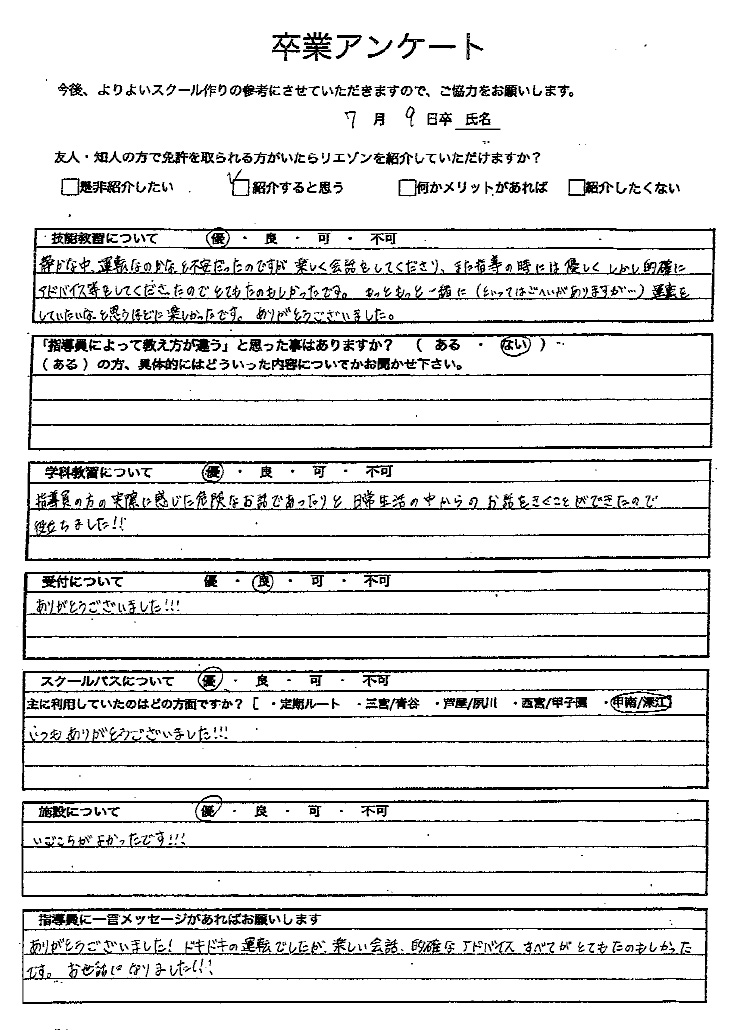 卒業アンケート
今後、よりよいスクール作りの参考にさせていただきますので、ご協力をお願いします。
7 月 9 日卒 氏名
友人・知人の方で免許を取られる方がいたらリエゾンを紹介していただけますか？
□是非紹介したい □紹介すると思う □何かメリットがあれば □紹介したくない
技能教習について 優 ・ 良 ・ 可 ・ 不可
静かな中、運転なのかなと不安だったのですが 楽しく会話をしてくださり、また指導の時には優しく しかし的確に
アドバイス等をしてくださったので とてもたのもしかったです。 もっともっと一緒に（といってはごへいがありますが…）運転を
していたいなと思うほどに楽しかったです。 ありがとうございました。
「指導員によって教え方が違う」と思った事はありますか？ （ ある ・ ない ）
（ある）の方、具体的にはどういった内容についてかお聞かせ下さい。
学科教習について 優 ・ 良 ・ 可 ・ 不可
指導員の方の実際に感じた危険なお話であったりと 日常生活の中からの お話をきくことができたので
役立ちました!!
受付について 優 ・ 良 ・ 可 ・ 不可
ありがとうございました!!!
スクールバスについて 優 ・ 良 ・ 可 ・ 不可
主に利用していたのはどの方面ですか？ [ ・定期ルート ・三宮/青谷 ・芦屋/夙川 ・西宮/甲子園 ・甲南/深江]
いつもありがとうございました!!!
施設について 優 ・ 良 ・ 可 ・ 不可
いごこちがよかったです!!!
指導員に一言メッセージがあればお願いします
ありがとうございました! ドキドキの運転でしたが、楽しい会話、的確なアドバイス すべてが とてもたのもしかった
です。 お世話になりました!!!